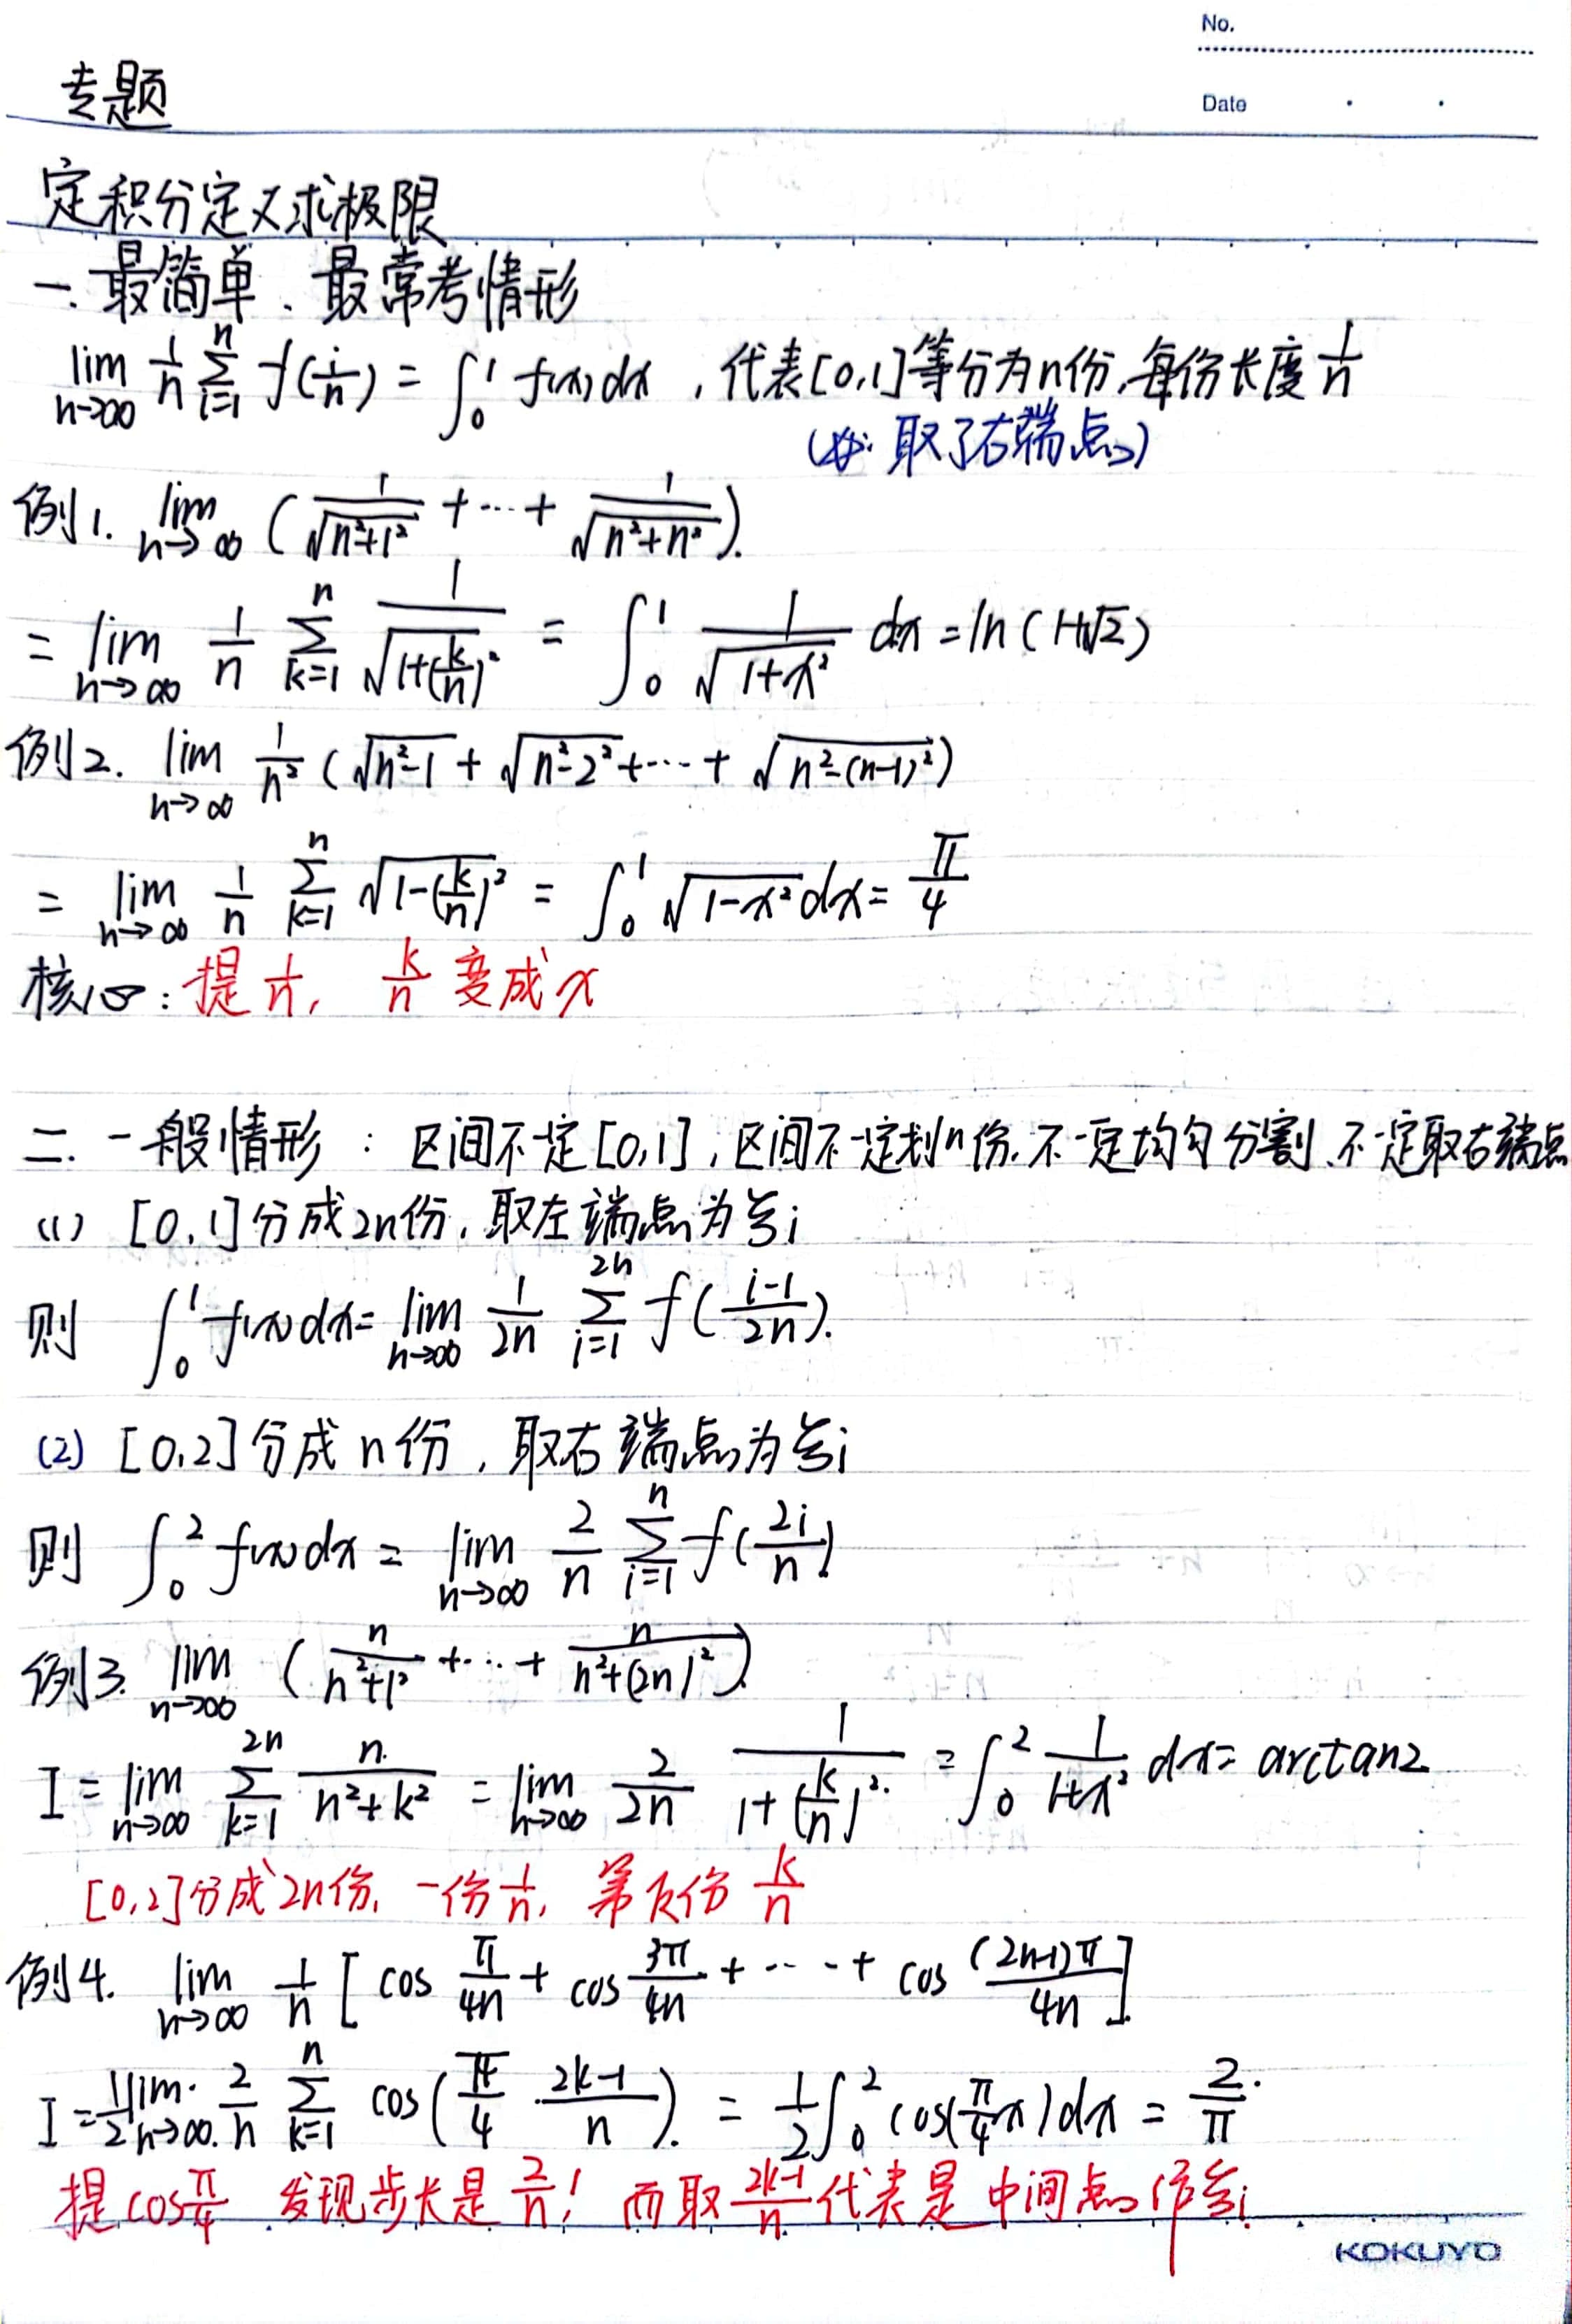 No.
Date
专题
定积分定义求极限
一. 最简单、最常考情形
lim_{n→∞} 1/n Σ_{i=1}^{n} f(i/n) = ∫_0^1 f(x)dx , 代表[0,1]等分为n份,每份长度1/n
(取了右端点)
例1. lim_{n→∞} (1/√(n²+1²) + ··· + 1/√(n²+n²)).
= lim_{n→∞} 1/n Σ_{k=1}^{n} 1/√(1+(k/n)²) = ∫_0^1 1/√(1+x²) dx = ln(1+√2)
例2. lim_{n→∞} 1/n² (√(n²-1) + √(n²-2²) + ··· + √(n²-(n-1)²))
= lim_{n→∞} 1/n Σ_{k=1}^{n} √(1-(k/n)²) = ∫_0^1 √(1-x²) dx = π/4
核心: 提1/n, k/n 变成x
二. 一般情形 : 区间不一定[0,1], 区间不一定划n份, 不一定均匀分割、不一定取右端点
(1) [0,1]分成2n份, 取左端点为ξi
则 ∫_0^1 f(x)dx = lim_{n→∞} 1/2n Σ_{i=1}^{2n} f((i-1)/2n).
(2) [0,2]分成n份, 取右端点为ξi
则 ∫_0^2 f(x)dx = lim_{n→∞} 2/n Σ_{i=1}^{n} f(2i/n)
例3. lim_{n→∞} (n/(n²+1²) + ··· + n/(n²+(2n)²))
I = lim_{n→∞} Σ_{k=1}^{2n} n/(n²+k²) = lim_{n→∞} 2/2n 1/(1+(k/n)²) = ∫_0^2 1/(1+x²) dx = arctan2
[0,2]分成2n份, 一份1/n, 第k份 k/n
例4. lim_{n→∞} 1/n [cos π/4n + cos 3π/4n + ···· + cos (2n-1)π/4n]
I = 1/2 lim_{n→∞} 2/n Σ_{k=1}^{n} cos(π/4 · (2k-1)/n). = 1/2 ∫_0^2 cos(π/4 x)dx = 2/π
提cos π/4 , 发现步长是 2/n! 而取 (2k-1)/n 代表是中间点作ξi
KOKUYO